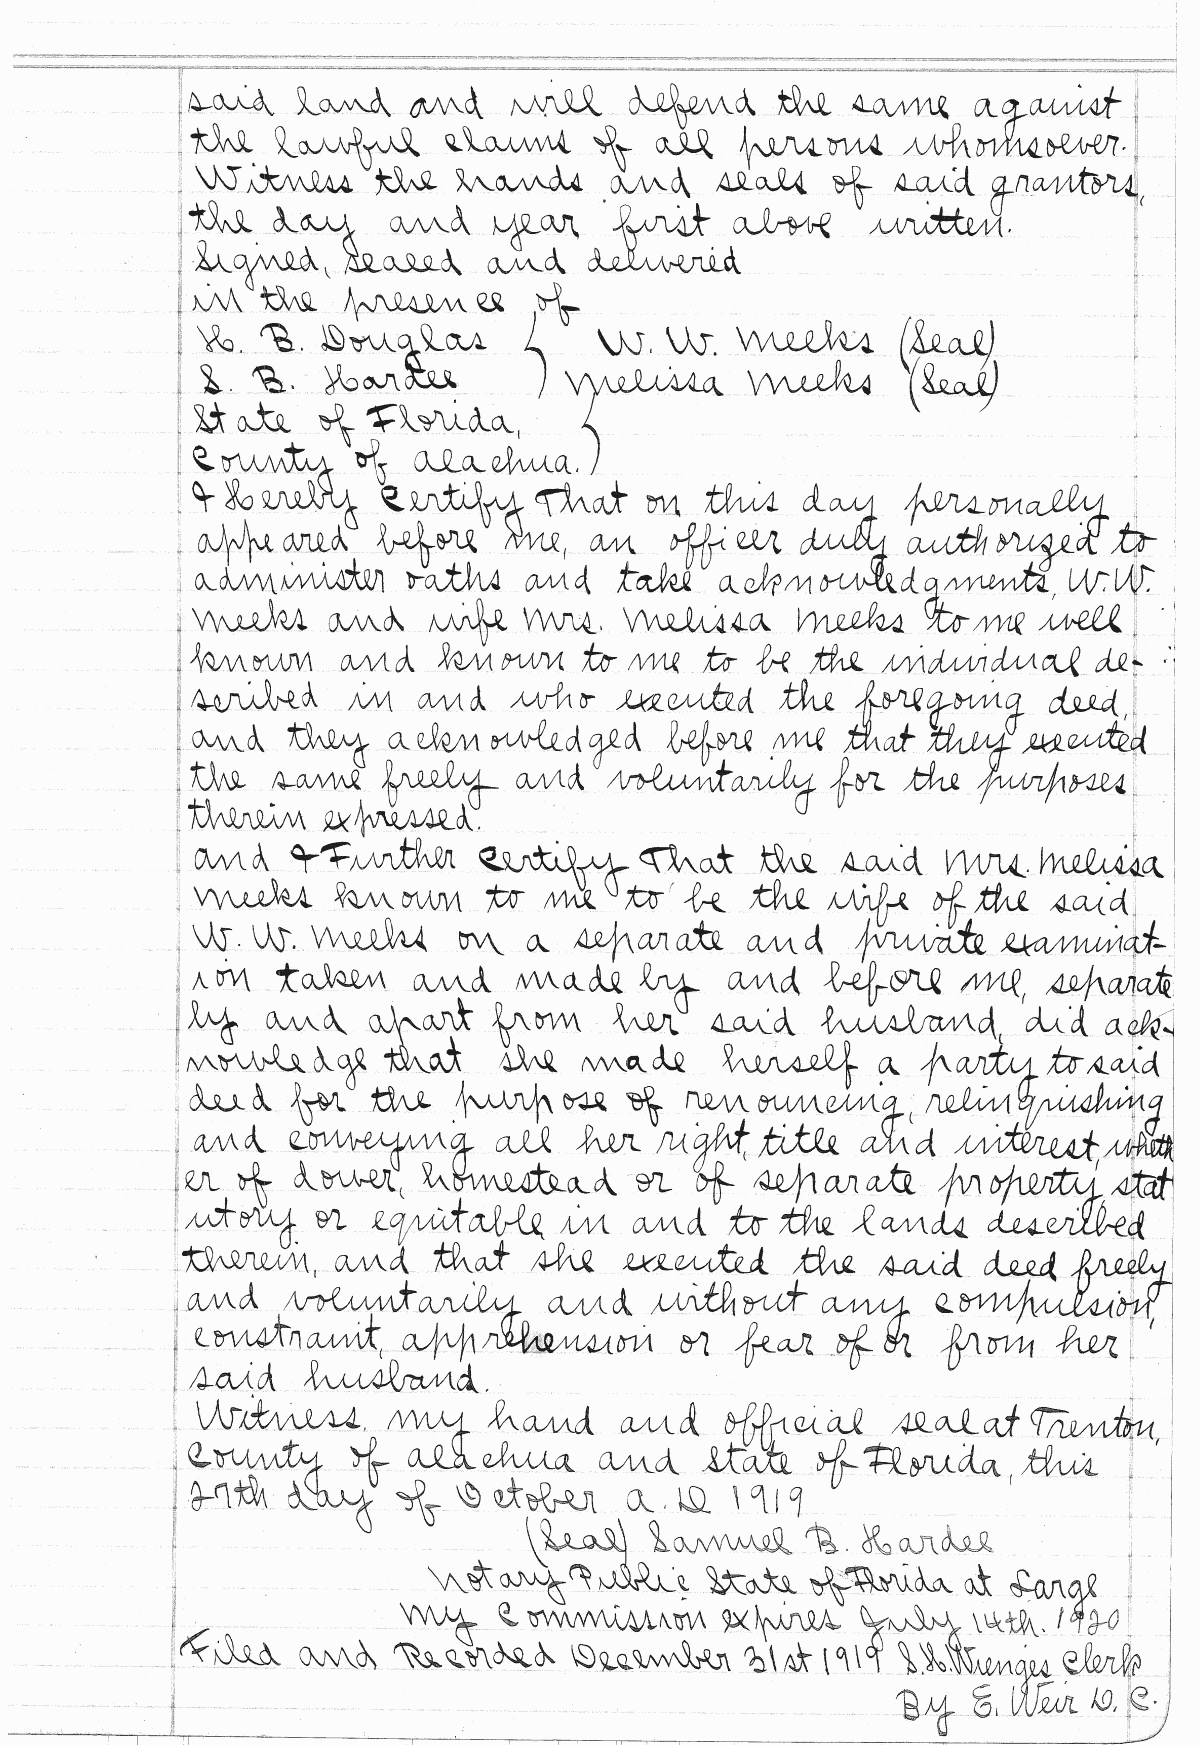 said land and will defend the same against
the lawful claims of all persons whomsoever.
Witness the hands and seals of said grantors,
the day and year first above written.
Signed, sealed and delivered
in the presence of
H. B. Douglas } W. W. Meeks (Seal)
S. B. Hardee ) Melissa Meeks (Seal)
State of Florida, }
County of Alachua. )
I Hereby Certify That on this day personally
appeared before me, an officer duly authorized to
administer oaths and take acknowledgments, W.W.
Meeks and wife Mrs. Melissa Meeks to me well
known and known to me to be the individual de-
scribed in and who executed the foregoing deed,
and they acknowledged before me that they executed
the same freely and voluntarily for the purposes
therein expressed.
And I Further Certify That the said Mrs. Melissa
Meeks known to me to be the wife of the said
W. W. Meeks on a separate and private examinat-
ion taken and made by and before me, separate
ly and apart from her said husband, did ack-
nowledge that she made herself a party to said
deed for the purpose of renouncing, relinquishing
and conveying all her right, title and interest, wheth
er of dower, homestead or of separate property, stat
utory or equitable, in and to the lands described
therein, and that she executed the said deed freely
and voluntarily and without any compulsion,
constraint, apprehension or fear of or from her
said husband.
Witness, my hand and official seal at Trenton,
County of Alachua and State of Florida, this
27th day of October A. D 1919
(Seal) Samuel B. Hardee
Notary Public State of Florida at Large
My Commission expires July 14th. 1920
Filed and Recorded December 31st 1919 S.H. Wienges Clerk
By E. Weir D. C.